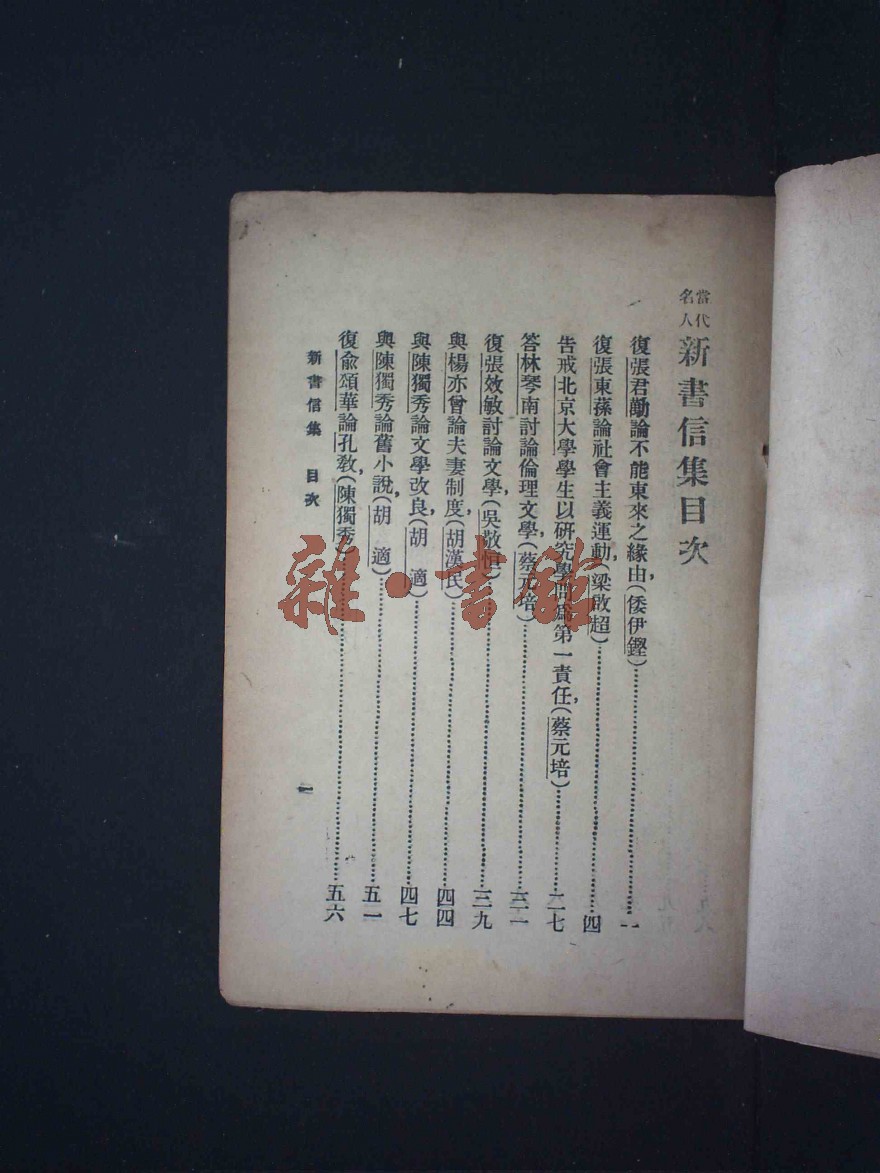 當代名人新書信集目次
復張君勱論不能東來之緣由，(倭伊鏗)……一
復張東蓀論社會主義運動，(梁啟超)……四
告戒北京大學學生以研究學問爲第一責任，(蔡元培)……二七
答林琴南討論倫理文學，(蔡元培)……三一
復張效敏討論文學，(吳敬恒)……三九
與楊亦曾論夫妻制度，(胡漢民)……四四
與陳獨秀論文學改良，(胡適)……四七
與陳獨秀論舊小說，(胡適)……五一
復俞頌華論孔教，(陳獨秀)……五六
新書信集 目次
一
雜·書館